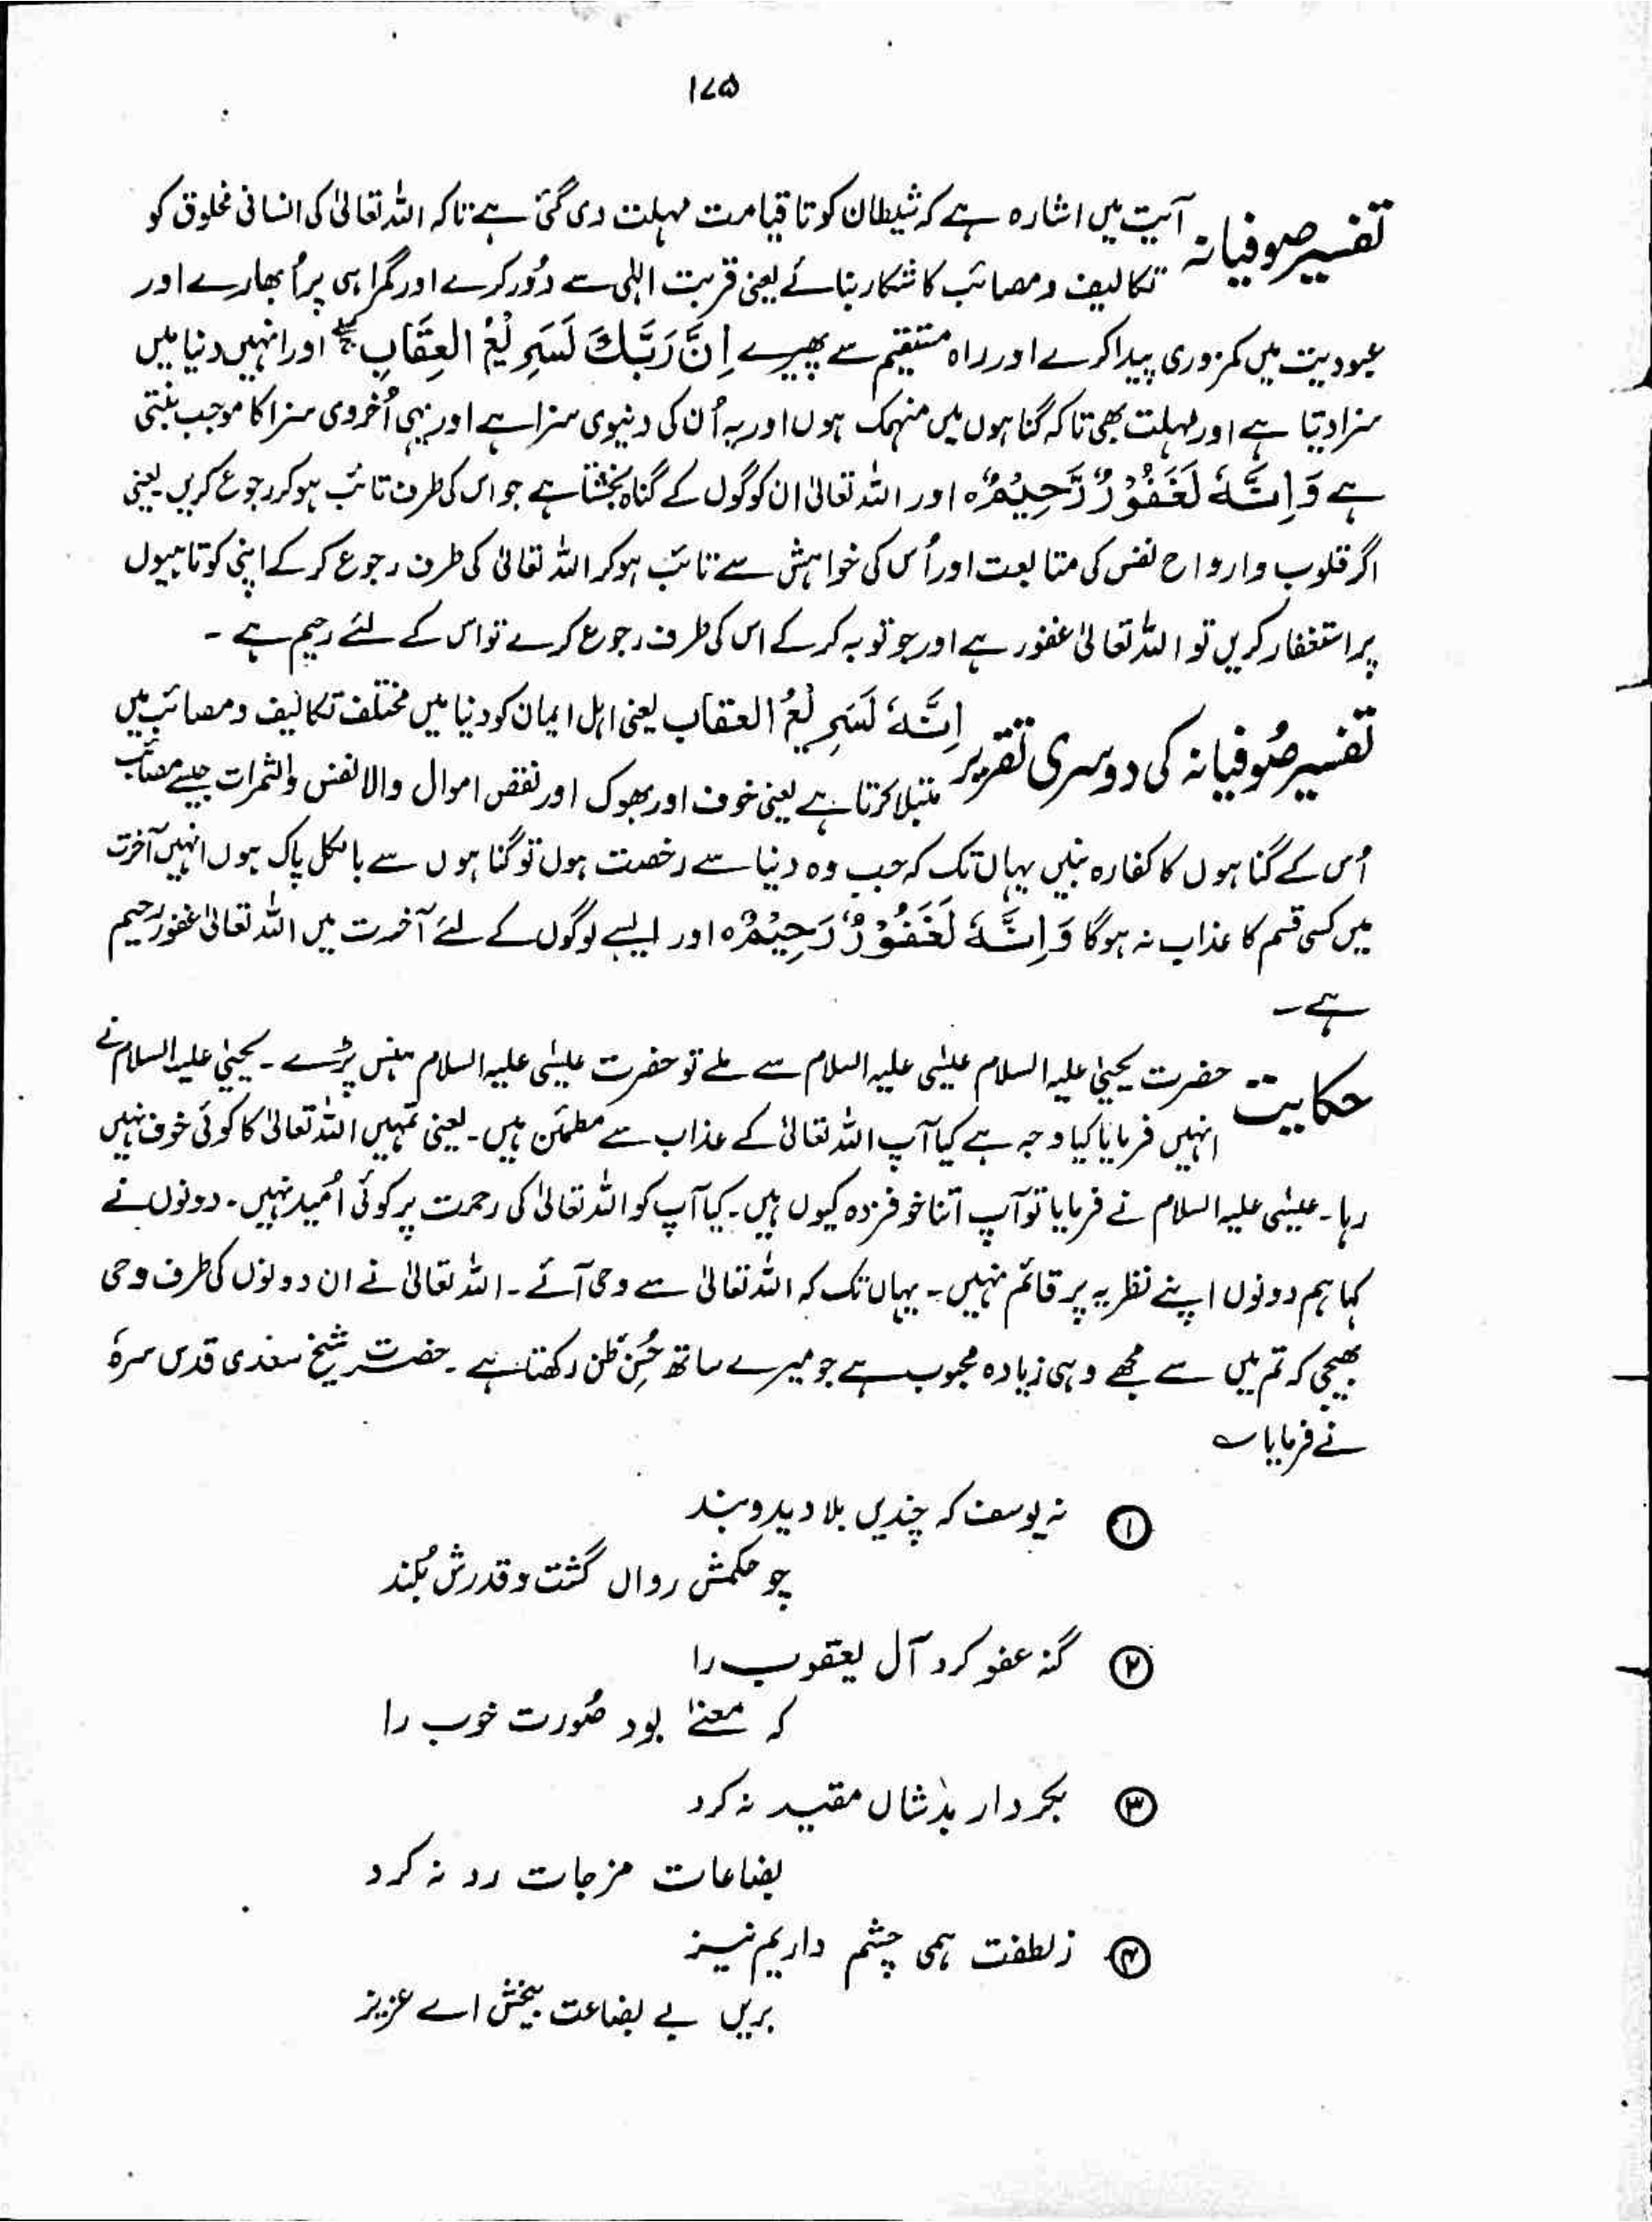 ۱۷۵
تفسیر صوفیانہ آیت میں اشارہ ہے کہ شیطان کو تا قیامت مہلت دی گئی ہے تاکہ اللہ تعالیٰ کی انسانی مخلوق کو
تکالیف و مصائب کا شکار بنائے یعنی قربت الٰہی سے دُور کرے اور گمراہی پر اُبھارے اور
عبودیت میں کمزوری پیدا کرے اور راہ مستقیم سے پھیرے اِنَّ رَبَّكَ لَسَرِيْعُ الْعِقَابِ اور انہیں دنیا میں
سزا دیتا ہے اور مہلت بھی تاکہ گناہوں میں منہمک ہوں اور یہ اُن کی دنیوی سزا ہے اور یہی اُخروی سزا کا موجب بنتی
ہے وَاِنَّهٗ لَغَفُوْرٌ رَّحِيْمٌ ہ اور اللہ تعالیٰ ان لوگوں کے گناہ بخشتا ہے جو اس کی طرف تائب ہو کر رجوع کریں یعنی
اگر قلوب و ارواح نفس کی متابعت اور اُس کی خواہش سے تائب ہو کر اللہ تعالیٰ کی طرف رجوع کر کے اپنی کوتاہیوں
پر استغفار کریں تو اللہ تعالیٰ غفور ہے اور جو توبہ کر کے اس کی طرف رجوع کرے تو اس کے لئے رحیم ہے ۔
تفسیر صُوفیانہ کی دوسری تقریر اِنَّهٗ لَسَرِيْعُ العقاب یعنی اہل ایمان کو دنیا میں مختلف تکالیف و مصائب میں
مبتلا کرتا ہے یعنی خوف اور بھوک اور نقص اموال والانفس والثمرات جیسے مصائب
اُس کے گناہوں کا کفارہ بنیں یہاں تک کہ جب وہ دنیا سے رخصت ہوں تو گناہوں سے بالکل پاک ہوں انہیں آخرت
میں کسی قسم کا عذاب نہ ہوگا وَاِنَّهٗ لَغَفُوْرٌ رَحِيْمٌ ہ اور ایسے لوگوں کے لئے آخرت میں اللہ تعالیٰ غفور رحیم
ہے ۔
حکایت حضرت یحییٰ علیہ السلام عیسٰی علیہ السلام سے ملے تو حضرت عیسٰی علیہ السلام ہنس پڑے ۔ یحییٰ علیہ السلام نے
انہیں فرمایا کیا وجہ ہے کیا آپ اللہ تعالیٰ کے عذاب سے مطمئن ہیں ۔ یعنی تمہیں اللہ تعالیٰ کا کوئی خوف نہیں
رہا ۔ عیسٰی علیہ السلام نے فرمایا تو آپ اتنا خوفزدہ کیوں ہیں ۔ کیا آپ کو اللہ تعالیٰ کی رحمت پر کوئی اُمید نہیں ۔ دونوں نے
کہا ہم دونوں اپنے نظریہ پر قائم نہیں ۔ یہاں تک کہ اللہ تعالیٰ سے وحی آئے ۔ اللہ تعالیٰ نے ان دونوں کی طرف وحی
بھیجی کہ تم میں سے مجھے وہی زیادہ محبوب ہے جو میرے ساتھ حُسنِ ظن رکھتا ہے ۔ حضرت شیخ سعدی قدس سرہٗ
نے فرمایا ؎
① نہ یوسف کہ چندیں بلا دید و بند
چو حکمش رواں گشت و قدرش بُلند
② گنہ عفو کرد آل یعقوب را
کہ معنیٰ بود صُورت خوب را
③ بکردار بدشاں مقید نہ کرد
بضاعات مزجات رد نہ کرد
④ زلطفت ہمی چشم داریم نیز
بریں بے بضاعت ببخش اے عزیز